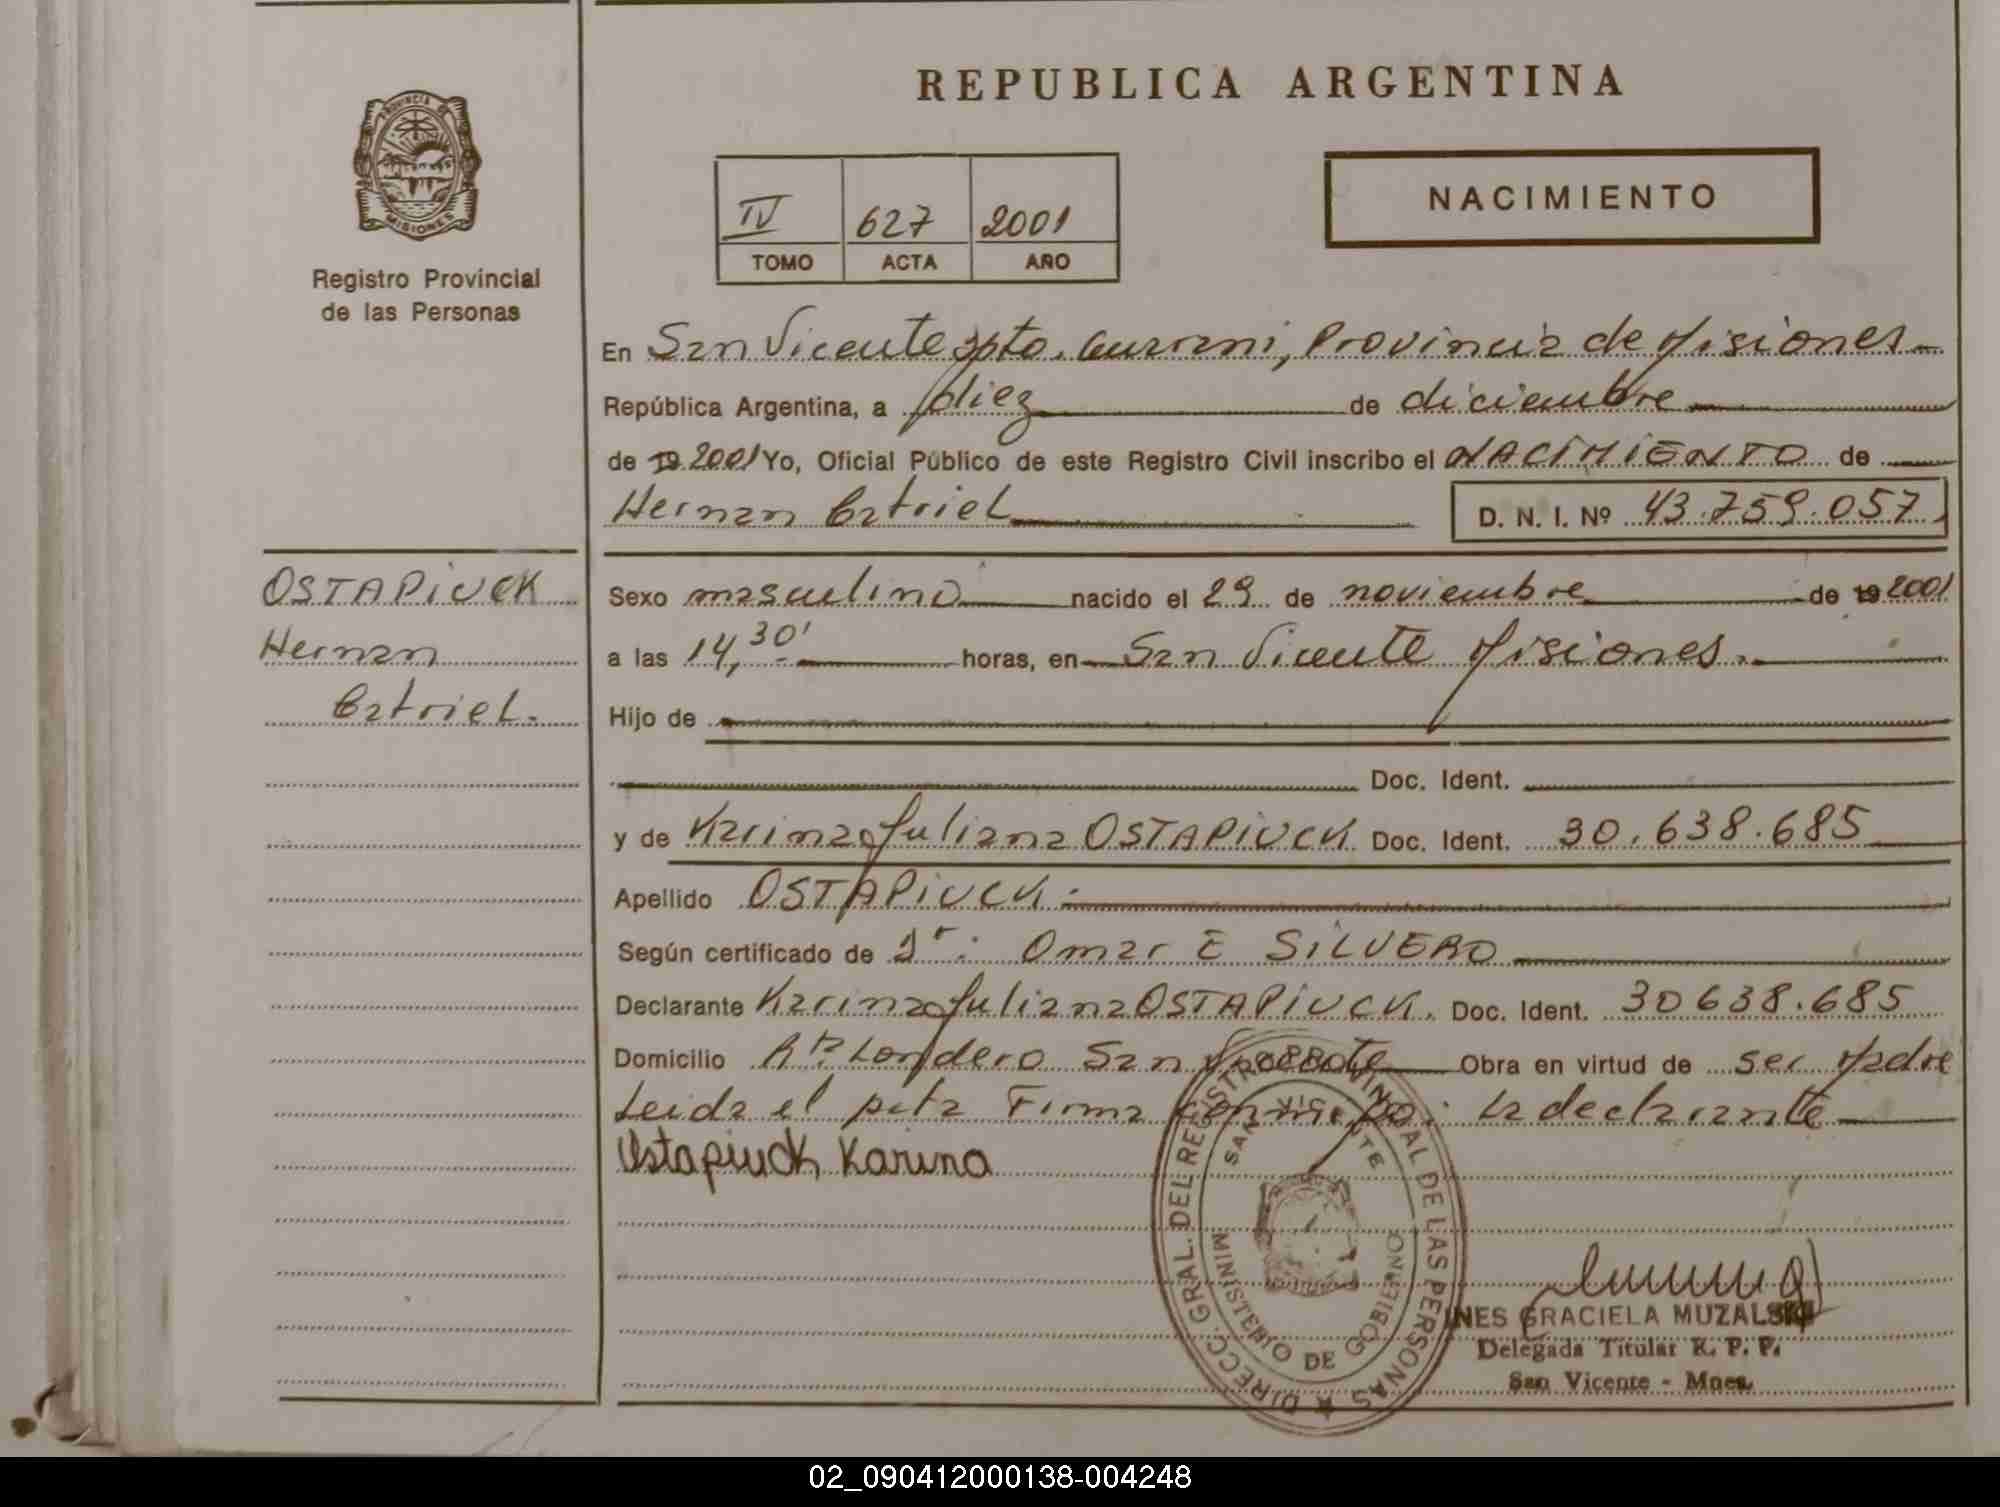 REPUBLICA ARGENTINA
PROVINCIA DE
MISIONES
Registro Provincial
de las Personas
IV 627 2001
TOMO ACTA AÑO
NACIMIENTO
En San Vicente Dpto. Guarani, Provincia de Misiones
República Argentina, a diez de diciembre
de 19 2001 Yo, Oficial Público de este Registro Civil inscribo el NACIMIENTO de
Hernan Gatriel D. N. I. Nº 43.759.057
OSTAPiUCK
Hernan
Gatriel.
Sexo masculino nacido el 29 de noviembre de 19 2001
a las 14,30' horas, en San Vicente Misiones.
Hijo de
Doc. Ident.
y de Karina Juliana OSTAPiUCK Doc. Ident. 30.638.685
Apellido OSTAPiUCK.
Según certificado de Dr. Omar E SiLVERO
Declarante Karina Juliana OSTAPiUCK. Doc. Ident. 30638.685
Domicilio Londero San Vicente Obra en virtud de ser Madre
Leida el acta Firma conmigo: La declarante
Ostapiuck Karina
DIRECC. GRAL. DEL REGISTRO PROVINCIAL DE LAS PERSONAS
SAN VICENTE
MINISTERIO DE GOBIERNO
INES GRACIELA MUZALSKI
Delegada Titular R. P. P.
San Vicente - Mnes.
02_090412000138-004248